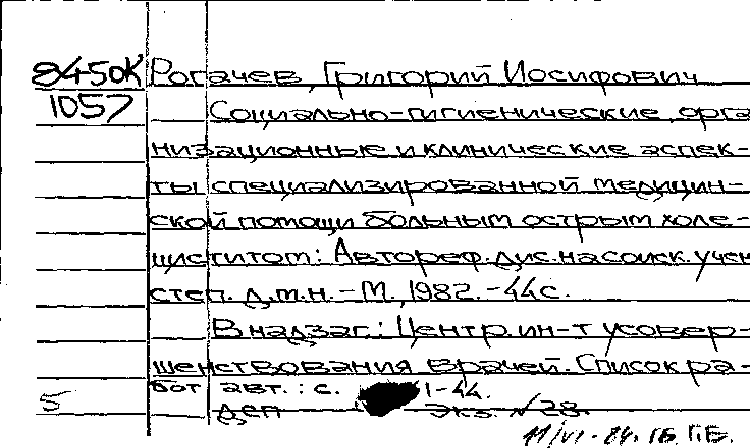 8450К Рогачев, Григорий Иосифович
1057 Социально-гигиенические, орга
низационные и клинические аспек-
ты специализированной медицин-
ской помощи больным острым холе-
циститом: Автореф. дис. на соиск. учен
степ. д.м.н. - М., 1982. - 44с.
В надзаг.: Центр. ин-т усовер-
шенствования врачей. Список ра-
бот авт.: с. 1-44.
5 ДСП Экз. №28.
11/VI-84. ГБ. ГБ.